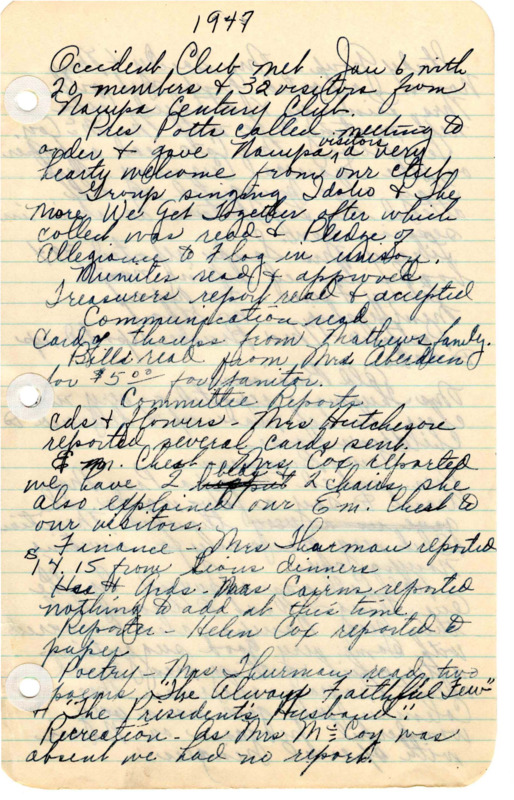 1947
Occident Club met Jan 6 with
20 members & 32 visitors from
Nampa Century Club.
Pres Potts called meeting to
order & gave Nampa visitors, a very
hearty welcome from our club
Group singing Idaho & The
More We Get Together after which
collect was read & Pledge of
Allegiance to Flag in unison.
Minutes read & approved
Treasurers report read & accepted
Communication read
Card of thanks from Mathews family.
Bills read from Mrs Aberdeen
for $5.00 for Janitor.
Committee Reports
Cds & flowers - Mrs Hutcheson
reported several cards sent.
Em. Chest - Mrs Cox reported
we have 2 beds 2 chairs, she
also explained our Em. Chest to
our visitors.
Finance - Mrs Thurman reported
$14.15 from Lions dinners
H & Grds - Mrs Cairns reported
nothing to add at this time
Reporter - Helen Cox reported to
paper
Poetry - Mrs Thurman read two
poems, "The Always Faithful Few"
& "The President's Husband".
Recreation - As Mrs McCoy was
absent we had no report.